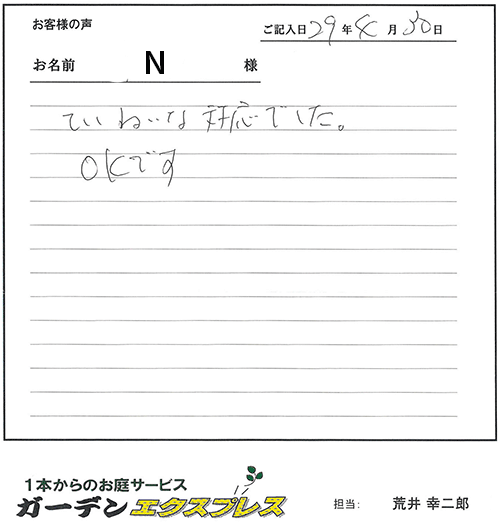 お客様の声
ご記入日 29 年 4 月 30 日
お名前 N 様
ていねいな対応でした。
OKです
1本からのお庭サービス
ガーデンエクスプレス
担当: 荒井 幸二郎